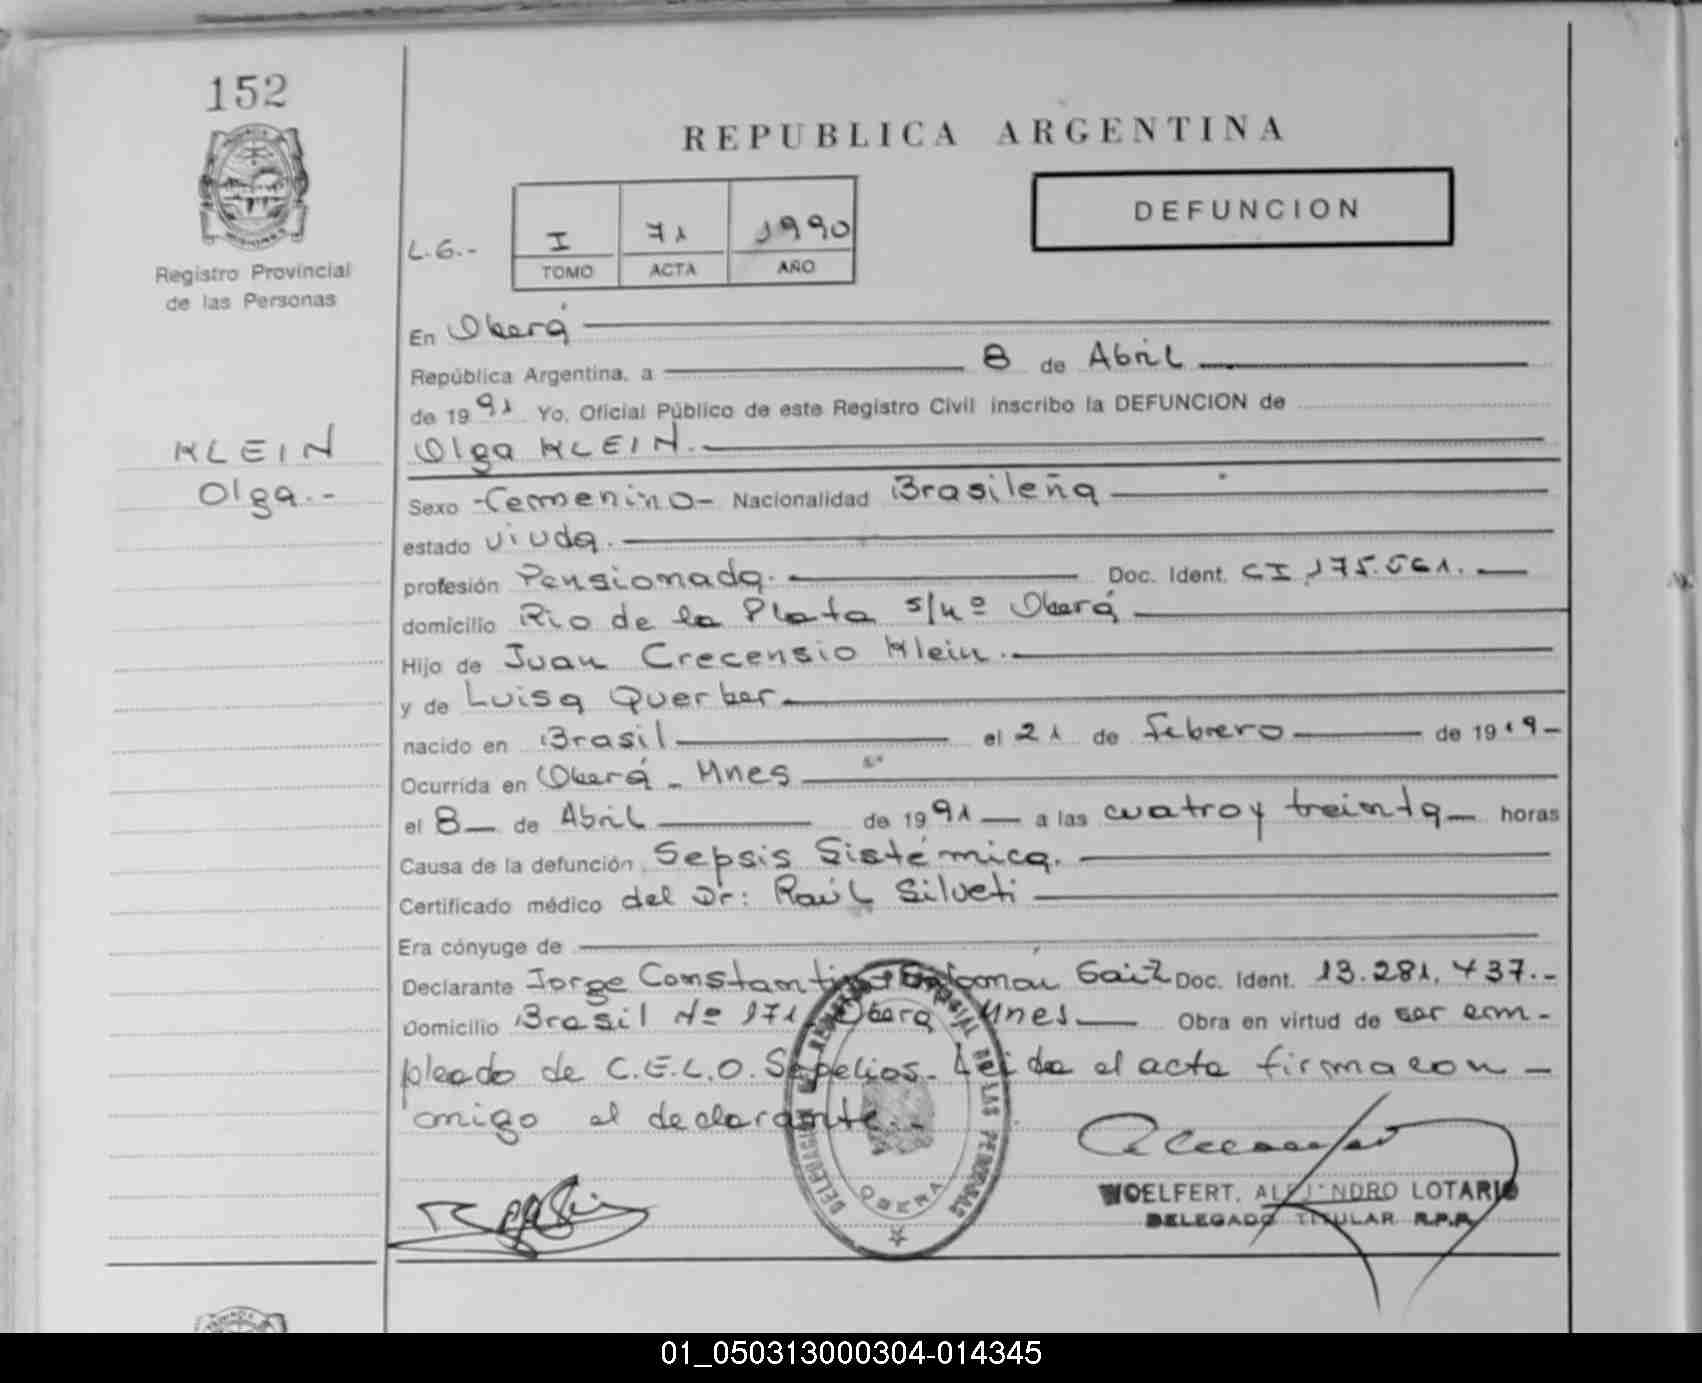 152
PROVINCIA
MISIONES
Registro Provincial
de las Personas
KLEIN
Olga.-
REPUBLICA ARGENTINA
DEFUNCION
L.G.-
I 71 1990
TOMO ACTA AÑO
En Oberá
República Argentina, a 8 de Abril
de 1991 Yo, Oficial Público de este Registro Civil inscribo la DEFUNCION de
Olga KLEIN.
Sexo -Femenino- Nacionalidad Brasileña
estado viuda.
profesión Pensionada. Doc. Ident. CI 175.561.
domicilio Rio de la Plata s/nº Oberá
Hijo de Juan Crecensio Klein.
y de Luisa Querber
nacido en Brasil el 21 de Febrero de 1919-
Ocurrida en Oberá - Mnes
el 8 de Abril de 1991 a las cuatro y treinta horas
Causa de la defunción Sepsis Sistémica.
Certificado médico del Dr: Raúl Silveti
Era cónyuge de
Declarante Jorge Constantino Doc. Ident. 13.281.437.-
Domicilio Brasil Nº 171 Oberá Mnes Obra en virtud de ser em-
pleado de C.E.L.O. Sepelios. Leida el acta firma con-
migo el declarante.
REGISTRO PROVINCIAL DE LAS PERSONAS
OBERA
WOELFERT, ALEJANDRO LOTARIO
DELEGADO TITULAR R.P.P.
01_050313000304-014345